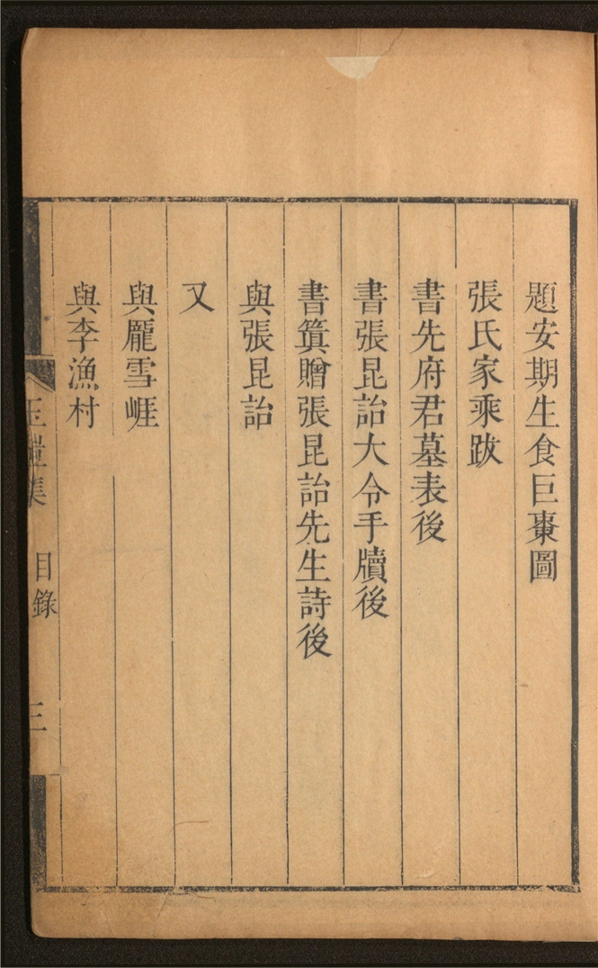 題安期生食巨棗圖
張氏家乘跋
書先府君墓表後
書張昆詒大令手牘後
書箕贈張昆詒先生詩後
與張昆詒
又
與龐雪崕
與李漁村
玉磑集
目錄
三